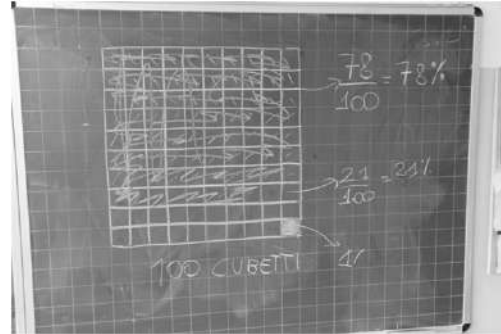 78/100 = 78%
21/100 = 21%
1%
100 CUBETTI